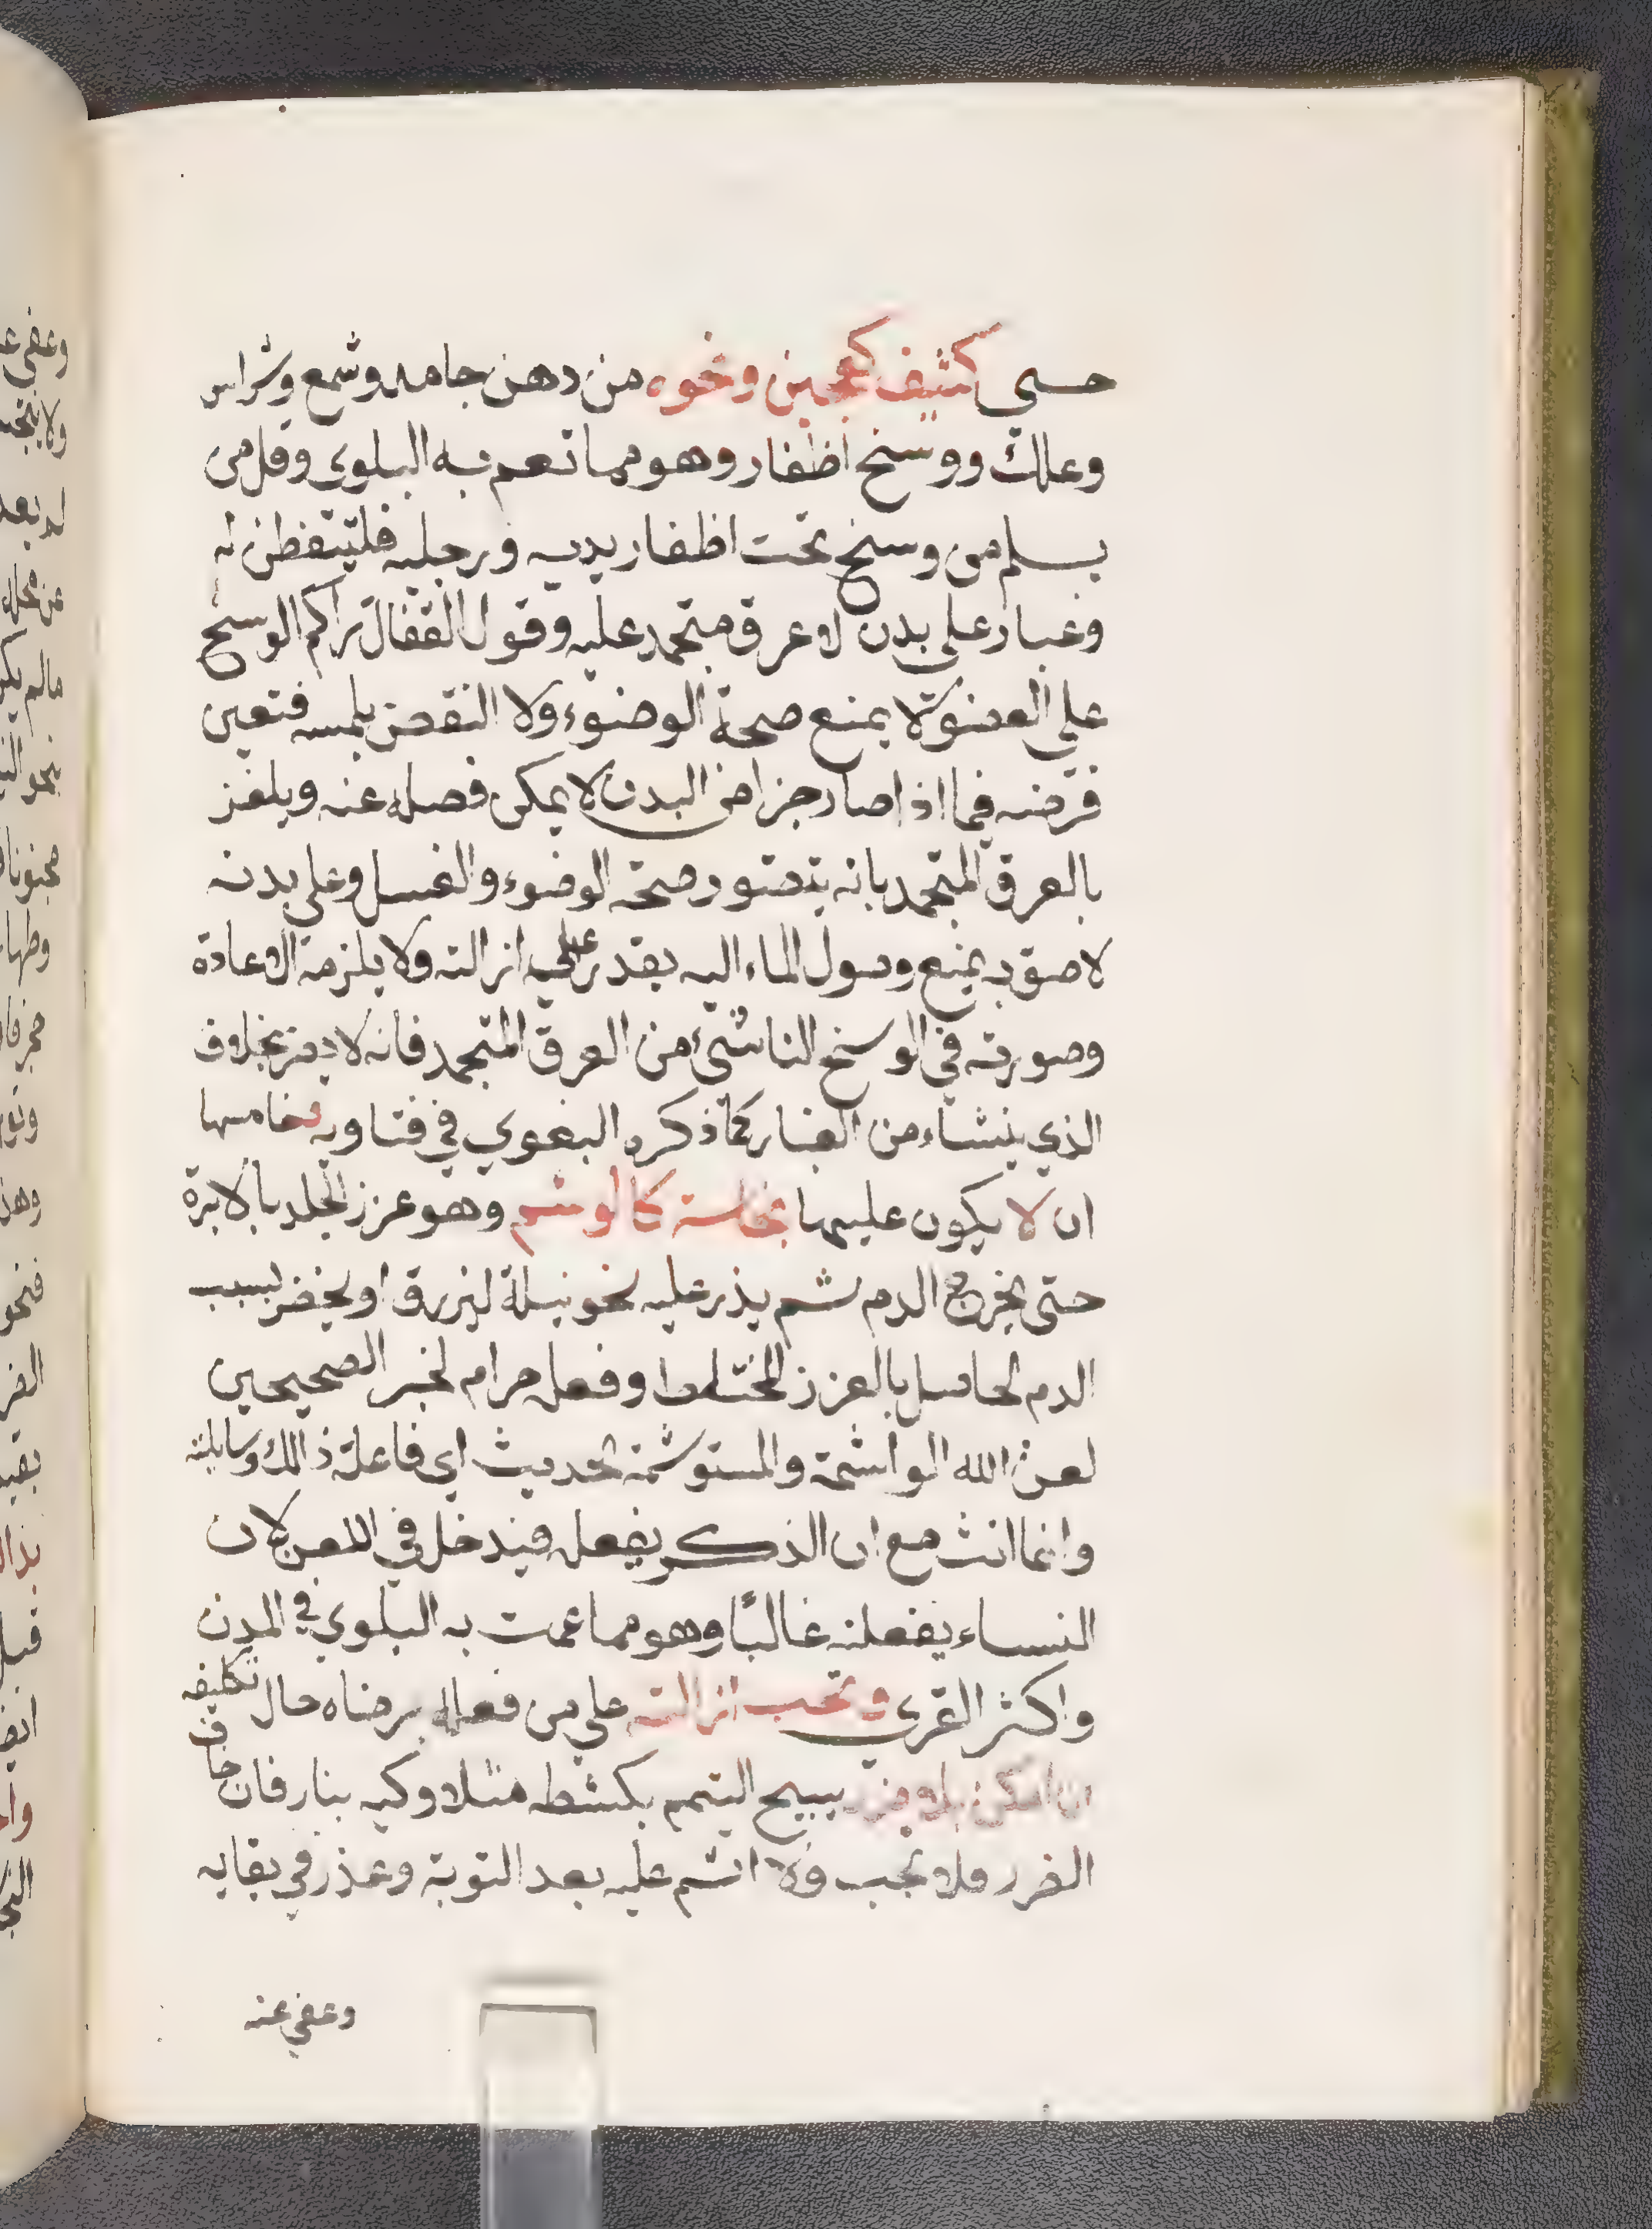 حسي كثيف كعجين ونحوه من دهن جامد وشمع وشراس
وعلك ووسخ اظفار وهو مما تعم به البلوي وقل من
يسلم من وسخ تحت اظفار يديه ورجليه فليتفطن له
وغبار علي بدن لا عرق متجمد عليه وقول القفال تراكم الوسخ
علي العضو لا يمنع صحة الوضوء ولا النقض بلمسه فتعين
فرضه فيما اذا صار جزا من البدن لا يمكن فصله عنه ويلغز
بالعرق المتجمد بانه يتصور صحة الوضوء والغسل وعلي بدنه
لاصوق يمنع وصول الماء اليه يقدر علي ازالته ولا يلزمه الاعادة
وصورته في الوسخ الناشئ من العرق المتجمد فانه لا يضر بخلاف
الذي ينشاء من الغبار كما ذكره البغوي في فتاويه خامسها
ان لا يكون عليها نجاسة كالوشم وهو غرز الجلد بالابرة
حتى يخرج الدم ثم يذر عليه نحو نيلة ليزرق او يخضر بسبب
الدم الحاصل بالغرز المختلط وفعله حرام لخبر الصحيحين
لعن الله الواشمة والمستوشمة الحديث اي فاعلة ذالك وسايلته
وانما انث مع ان الذكر يفعله فيدخل في اللعن لان
النساء يفعلنه غالبًا وهو مما عمت به البلوي في المدن
واكثر القري وتجب ازالته علي من فعله برضاه حال تكليفه
ان امكن بلا ضرر يبيح التيمم بكشطه مثلا وكيه بنار فان خاف
الضرر فلا تجب ولا اثم عليه بعد التوبة وعذر في بقايه
وعفي عنه